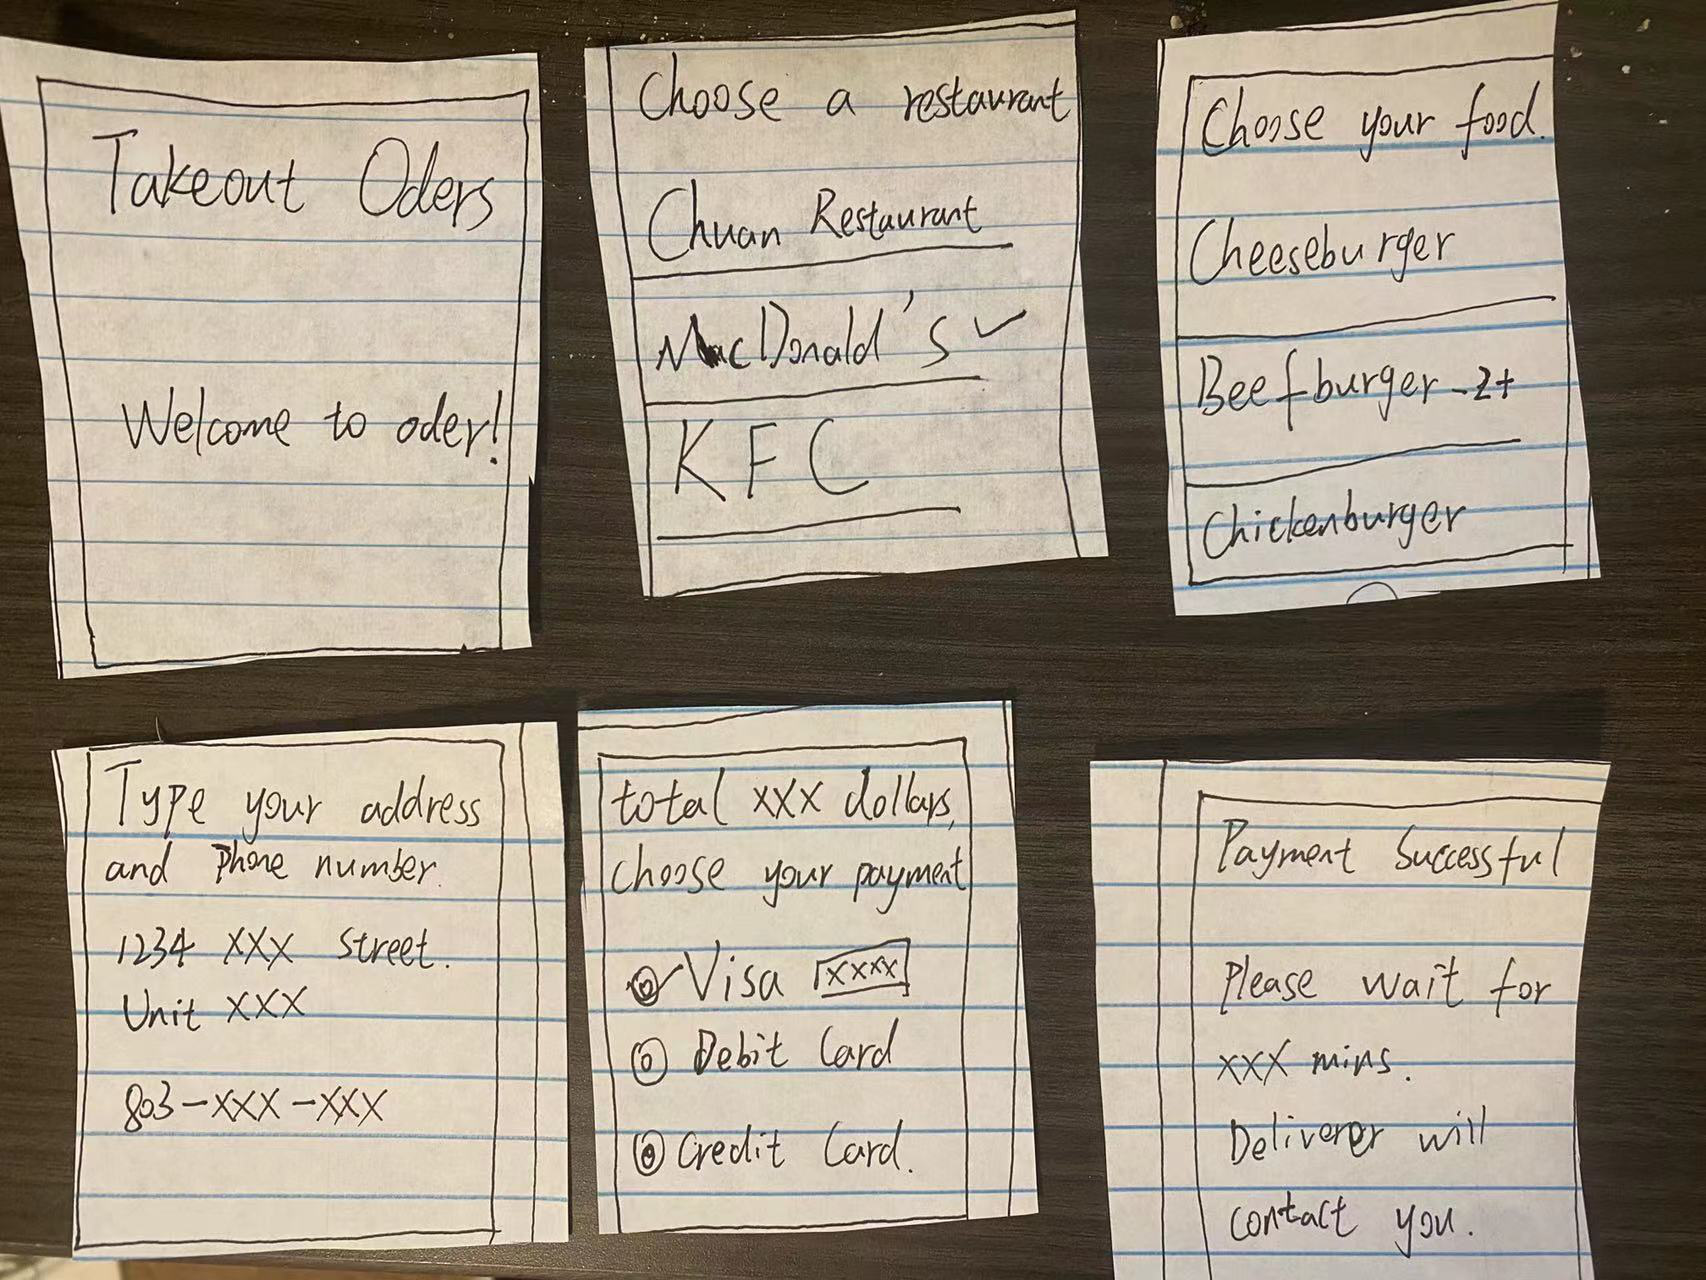 Takeout Oders
Welcome to oder!
Choose a restaurant
Chuan Restaurant
MacDonald's ✓
KFC
Choose your food.
Cheeseburger
Beefburger -2+
Chickenburger
Type your address
and Phone number.
1234 XXX Street.
Unit XXX
803-XXX-XXX
total XXX dollars,
choose your payment
Visa XXXX
Debit Card
Credit Card.
Payment Successful
Please wait for
XXX mins.
Deliverer will
contact you.